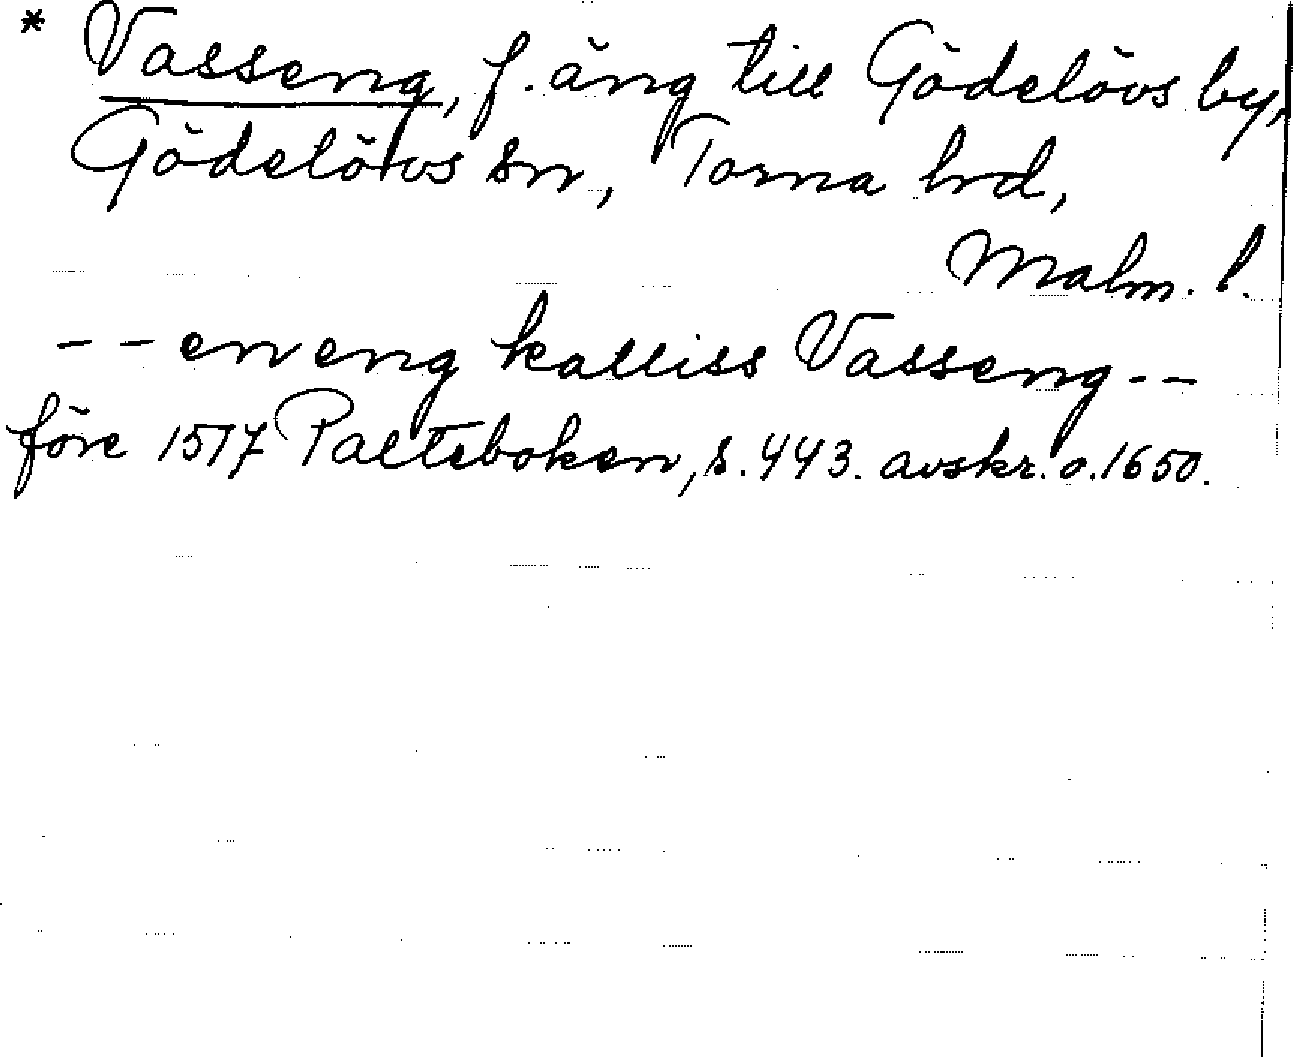 * Vasseng, f. äng till Gödelövs by,
Gödelövs sn, Torna hrd,
Malm. l.
-- en eng kalliss Vasseng --
före 1517 Paltsboken, s. 443. avskr. o. 1650.